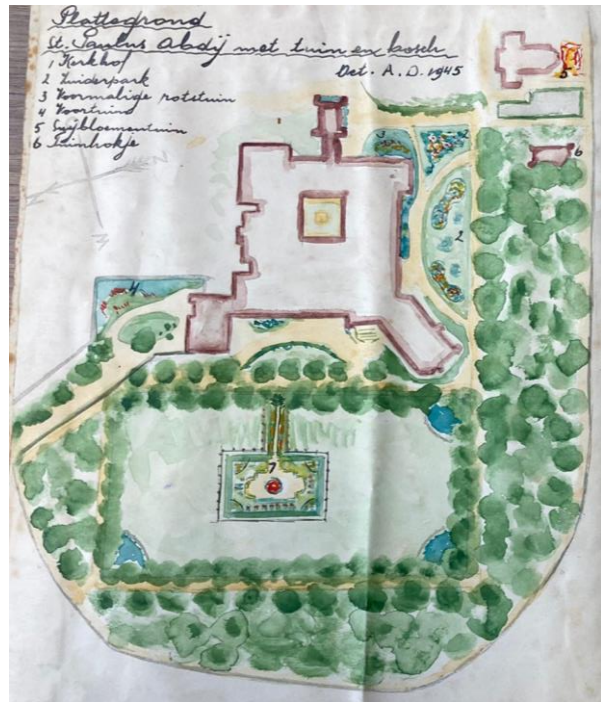 Plattegrond
St. Paulus Abdij met tuin en bosch
1 Kerkhof
A.D. 1945
2 Zuiderpark
3 Voormalige rotstuin
4 Voortuin
5 Snijbloementuin
6 Tuinhokje
5
3
2
6
2
N
4
1